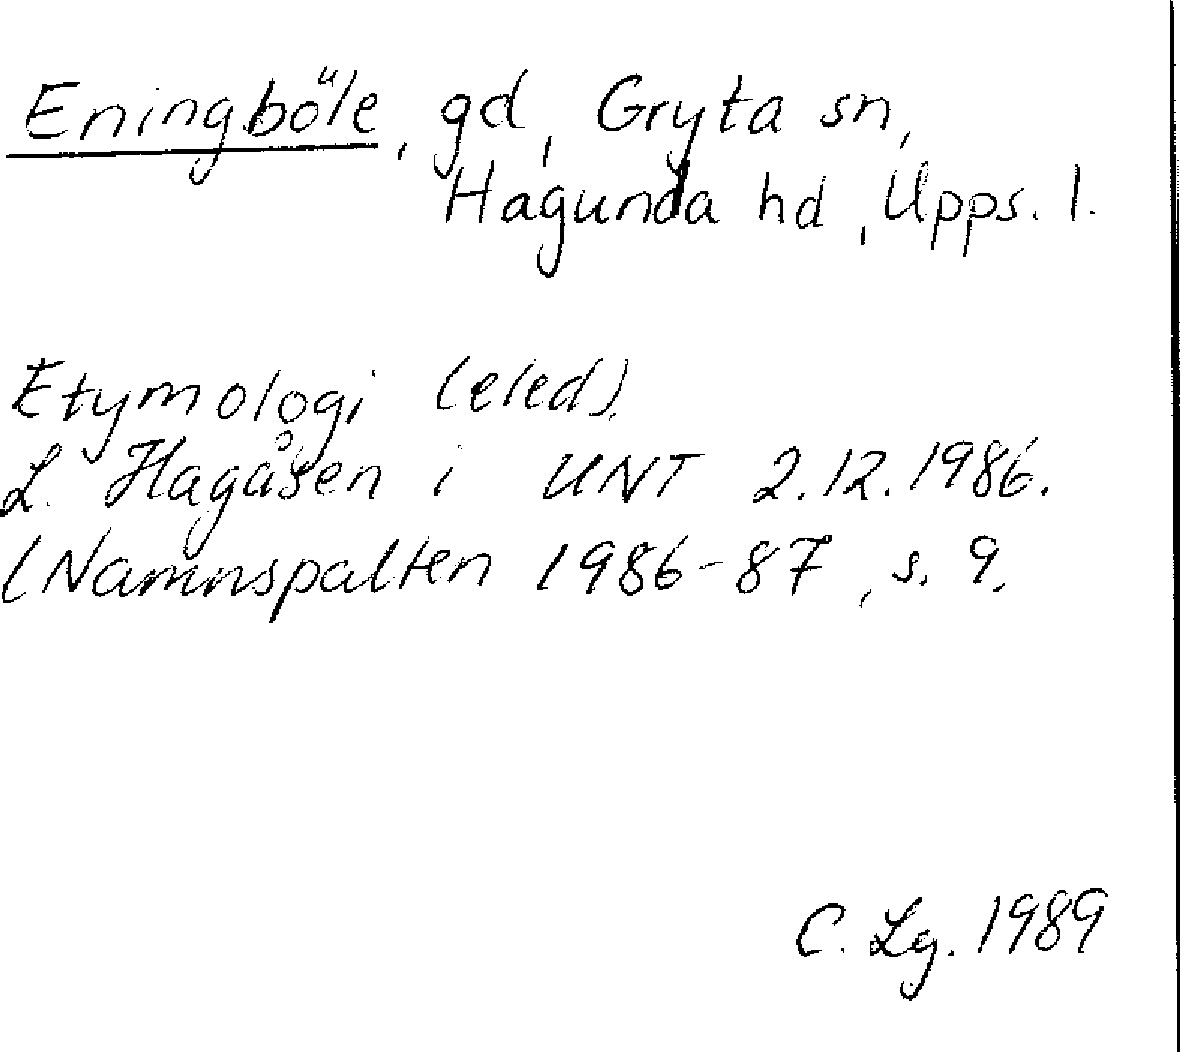 Eningböle, gd, Gryta sn,
Hagunda hd, Upps. l.
Etymologi (eled).
L. Hagåsen i UNT 2.12.1986.
(Namnspalten 1986-87, s. 9.
C. Lg. 1989